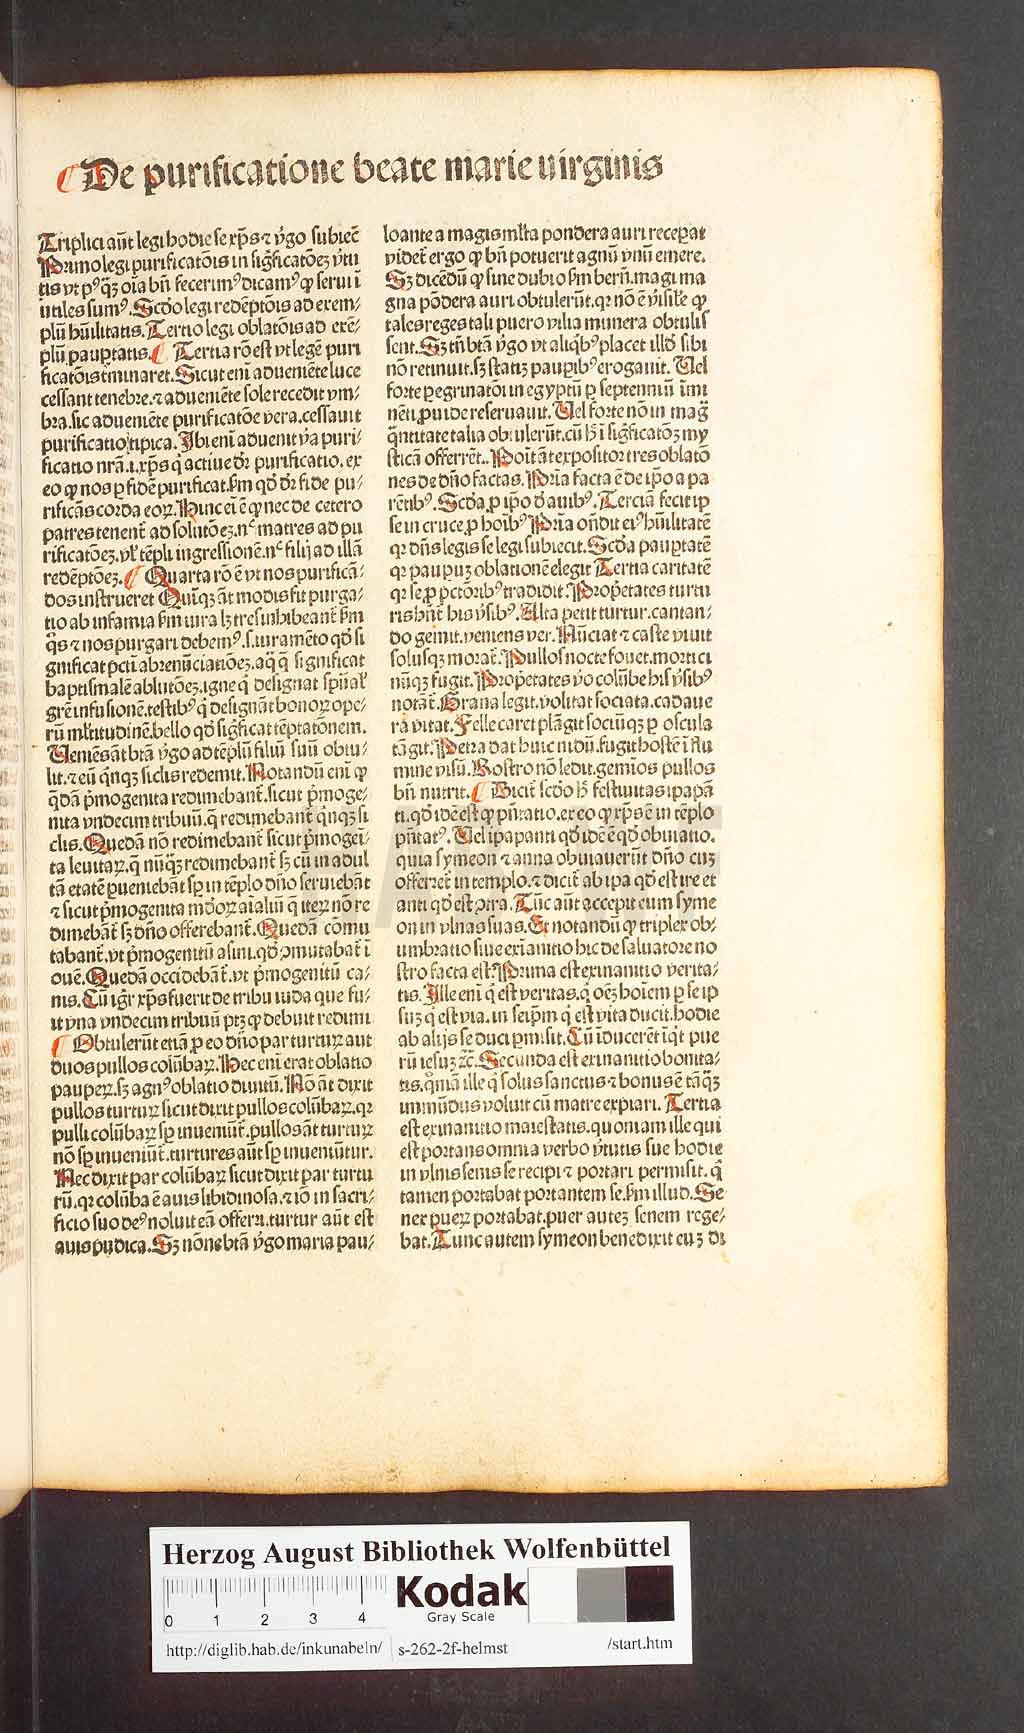 ¶ De purificatione beate marie uirginis
Triplici aūt legi hodie se xp̄s ⁊ v̄go subiec̄
Primo legi purificatōis in sigficatōeꝫ v̄tu
tis vt pꝰ qꝫ oīa bn̄ fecerimꝰ dicamꝰ ꝙ serui i
ūtiles sumꝰ. Scd̄o legi redēptōis ad exem⸗
plū hūilitatis. Tertio legi oblatōis ad exē⸗
plū paupertatis. ¶ Tertia rō est vt legē puri
ficatōis t̄minaret. Sicut eni adueniēte luce
cessant tenebre. ⁊ adueniēte sole recedit vm⸗
bra. sic adueniēte purificatōe vera. cessauit
purificatio tipica. Ibi eni aduenit v̄a puri⸗
ficatio nr̄a .i. xp̄s q̇ actiue dr̄ purificatio. ex
eo ꝙ nos ꝑ fidē purificat. ẜm qd̄ dr̄ fide pu⸗
rificās corda eoꝝ. Hinc eī ē ꝙ nec de cetero
patres tenent̄ ad solutōeꝫ. nᶜ matres ad pu
rificatōeꝫ. vl̄ tēpli ingressionē. nᶜ filij ad illā
redēptōeꝫ. ¶ Quarta rō ē vt nos purificā⸗
dos instrueret Quīqꝫ āt modis fit purga⸗
tio ab infamia ẜm iura lꝫ tres inhibeant̄ ẜm
q̊s ⁊ nos purgari debemꝰ. s. iuramēto qd̄ si
gnificat pctī abrenūciatiōeꝫ. aq̄ q̄ significat
baptismalē ablutōeꝫ. igne q̇ designat spūal̄
grē infusionē. testibꝰ q̇ designāt bonoꝝ ope⸗
rū ml̄titudinē. bello qd̄ sigficat tēptatōnem.
Ueniēs āt btā v̄go ad tēplū filiū suū obtu⸗
lit. ⁊ eū qnqꝫ siclis redemit. Notandū eni ꝙ
q̄dā pmogenita redimebant̄. sicut pmoge⸗
nita vndecim tribuū. q̄ redimebant̄ qnqꝫ si
clis. Quedā nō redimebant̄ sicut pmogeī⸗
ta leuitaꝝ. q̄ nūqꝫ redimebant̄ sꝫ cū in adul
tā etatē ꝑueniebāt sꝑ in tēplo dn̄o seruiebāt
⁊ sicut pmogenita mūdoꝝ aīaliū q̄ iteꝝ nō re
dimebāt̄ sꝫ dn̄o offerebant̄. Quedā cōmu
tabant̄. vt pmogenitū asini. qd̄ ꝯmutabat̄ ī
ouē. Quedā occidebāt̄. vt pmogenitū ca⸗
nis. Cū igr̄ xp̄s fuerit de tribu iuda que fu⸗
it vna vndecim tribuū ptꝫ ꝙ debuit redimi
¶ Obtulerūt etiā ꝓ eo dn̄o par turtuꝝ aut
duos pullos colūbaꝝ. Hec eni erat oblatio
paupeꝝ. sꝫ agnꝰ oblatio diuitū. Nō āt dixit
pullos turtuꝝ sicut dixit pullos colūbaꝝ. qꝛ
pulli colūbaꝝ sꝑ inueniūt̄. pullos āt turtuꝝ
nō sꝑ inueniūt̄. turtures aūt sꝑ inueniūtur.
Nec dixit par colūbaꝝ sicut dixit par turtu
rū. qꝛ colūba ē auis libidinosa. ⁊ iō in sacri⸗
ficio suo deꝰ noluit eā offerri. turtur aūt est
auis pudica. Sꝫ nōne btā v̄go maria pau⸗
loante a magis ml̄ta pondera auri receperat
videt̄ ergo ꝙ bn̄ potuerit agnū vnū emere.
Sꝫ dicēdū ꝙ sine dubio ẜm bern̄. magi ma
gna pōdera auri obtulerūt. qꝛ nō ē v̄isile ꝙ
tales reges tali puero vilia munera obtulis
sent. Sꝫ tn̄ btā v̄go vt aliqbꝰ placet illd̄ sibi
nō retinuit. sꝫ statiꝫ pauꝑibꝰ erogauit. Uel
forte ꝑegrinatōi in egyptū ꝑ septenniū īmi
nēti ꝓuide reseruauit. Uel forte nō in mag̈
q̄ntitate talia obtulerūt. cū hͦ ī sigficatōꝫ my
sticā offerrēt.. Poīt āt expositor tres oblatō
nes de dn̄o factas. Pria facta ē de ipo a pa
rētibꝰ. Scd̄a ꝓ ipo d̄ auibꝰ. Terciā fecit ip
se in cruce ꝓ hoībꝰ Pria on̄dit eiꝰ hūilitatē
qꝛ dn̄s legis se legi subiecit. Scd̄a paupertatē
qꝛ paupuꝫ oblationē elegit Tertia caritatē
qꝛ se ꝓ pctōribꝰ tradidit. Proprietates turtu
ris hn̄t̄ his v̄sibꝰ. Alta petit turtur. cantan⸗
do gemit. veniens ver. Nūciat ⁊ caste viuit
solusqꝫ morat̄. Pullos nocte fouet. mortici
nūqꝫ fugit. Proprietates v̄o colūbe his v̄sibꝰ
notāt̄. Grana legit. volitat sociata. cadaue
ra vitat. Felle caret plāgit sociūqꝫ ꝑ oscula
tāgit. Petra dat huic nidū. fugit hostē ī flu
mine visū. Rostro nō ledit. gemīos pullos
bn̄ nutrit. ¶ Dicit̄ scd̄o hͦ festiuitas ipapā
ti. qd̄ idē est ꝙ pn̄tatio. ex eo ꝙ xp̄s ē in tēplo
pn̄tatꝰ. Uel ipapanti qd̄ idē ē qd̄ obuiatio.
quia symeon ⁊ anna obuiauerūt dn̄o cuꝫ
offerret̄ in templo. ⁊ dicit̄ ab ipa qd̄ est ire et
anti qd̄ est ꝯtra. Tūc aūt accepit eum syme
on in vlnas suas. Et notandū ꝙ triplex ob⸗
umbratio siue exīanitio hic de saluatore no
stro facta est. Prima est exinanitio verita⸗
tis. Ille eni q̇ est veritas. q̇ oēꝫ hoīem ꝑ se ip
suꝫ q̇ est via. in seipm̄ q̇ est vita ducit. hodie
ab alijs se duci pmisit. Cū iducerēt iqt pue
rū iesuꝫ ⁊c̄. Secunda est exinanitio bonita⸗
tis. qm̄ā ille q̇ solus sanctus ⁊ bonus ē tāqꝫ
immūdus voluit cū matre expiari. Tertia
est exinanitio maiestatis. quoniam ille qui
est portans omnia verbo v̄tutis sue hodie
in vlnis senis se recipi ⁊ portari permisit. q̇
tamen portabat portantem se. ẜm illud. Se
nex pueꝝ portabat. puer auteꝫ senem rege⸗
bat. Tunc autem symeon benedixit euꝫ di
Herzog August Bibliothek Wolfenbüttel
0 1 2 3 4
Kodak
Gray Scale
http://diglib.hab.de/inkunabeln/ s-262-2f-helmst /start.htm
HAB WF